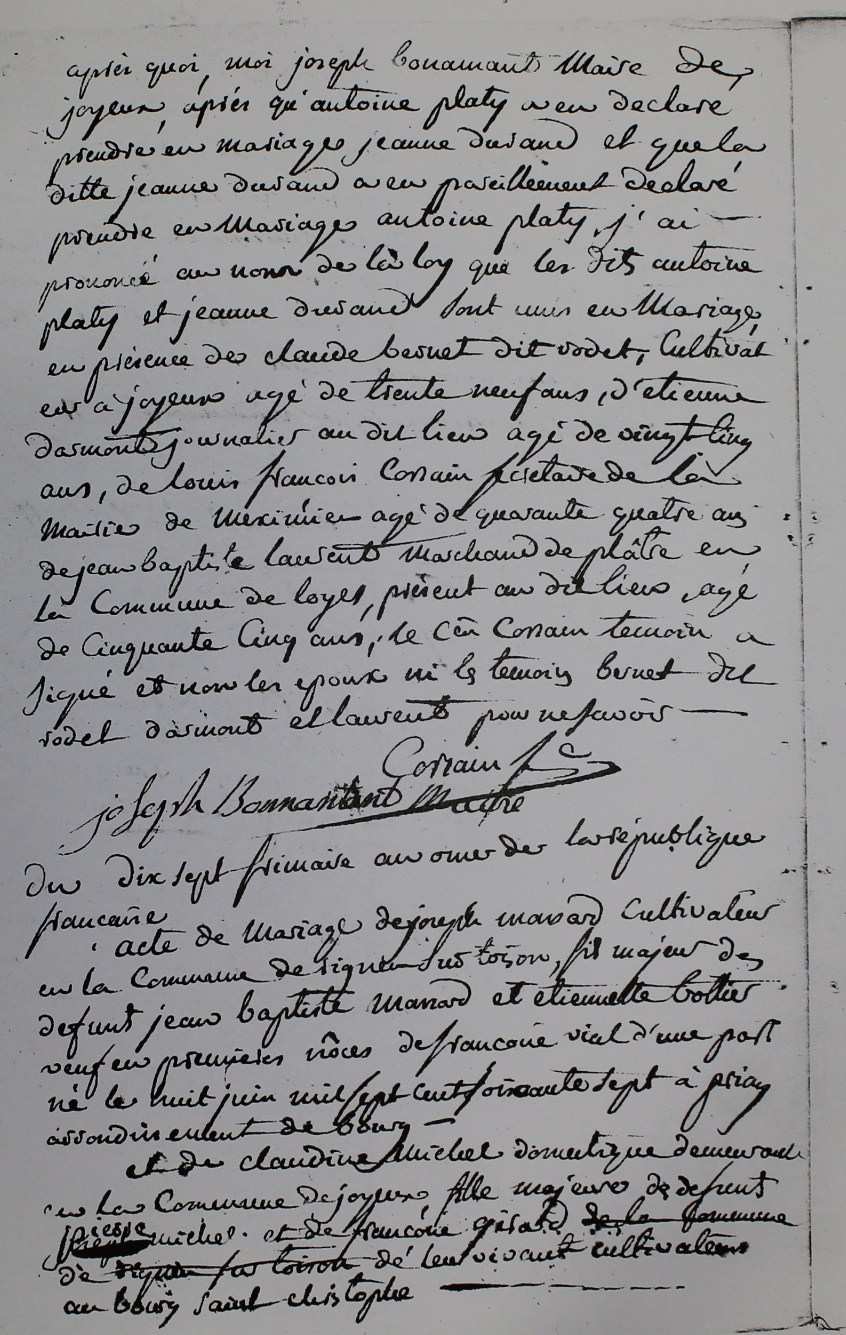 après quoi, moi joseph bonamant Maire de
joyeux, aprés qu'antoine platy a eu declaré
prendre en mariage jeanne durand et que la
ditte jeanne durand a eu pareillement declaré
prendre en Mariage antoine platy, j'ai —
prononcé au nom de la loy que les dits antoine
platy et jeanne durand sont unis en Mariage
en présence de claude bernet dit rodet, Cultivat
eur a joyeux agé de trente neuf ans, d'etienne
darmont journalier au dit lieu agé de vingt cinq
ans, de louis françois Corrain sécrétaire de la
Mairie de Meximieu agé de quarante quatre ans
de jean baptiste laurent Marchand de plâtre en
la Commune de loyes, présent au dit lieu, agé
de Cinquante Cinq ans, le Cen Corrain temoin a
signé et non les epoux ni les temoins bernet dit
rodet darmont et laurent pour ne savoir —
Corrain
joseph Bonnamant Maire
Du dix sept frimaire an onze de la république
francaise
acte de Mariage de joseph marrard Cultivateur
en la Commune de rignieu sur toison, fils majeur de
defunt jean baptiste Marrard et etiennette bottier
veuf en premieres nôces de francoise vial d'une part
né le huit juin mil sept cent soixante sept à priay
arrondissement de bourg —
et de claudine Michel domestique demeurant
en la Commune de joyeux fille majeure de defunt
pierre michel et de francoise girard de la commune
de rignieu sur toison de leur vivant cultivateurs
au bourg saint christophe —